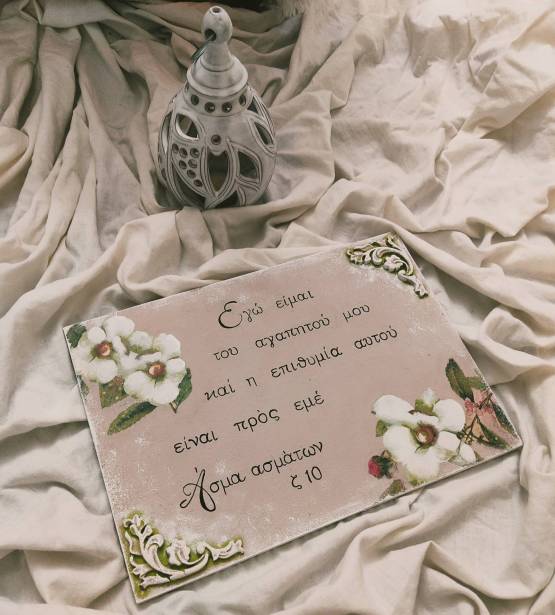 Εγώ είμαι
του αγαπητού μου
καί η επιθυμία αυτού
είναι πρὸς εμέ
Άσμα ασμάτων
ζ 10